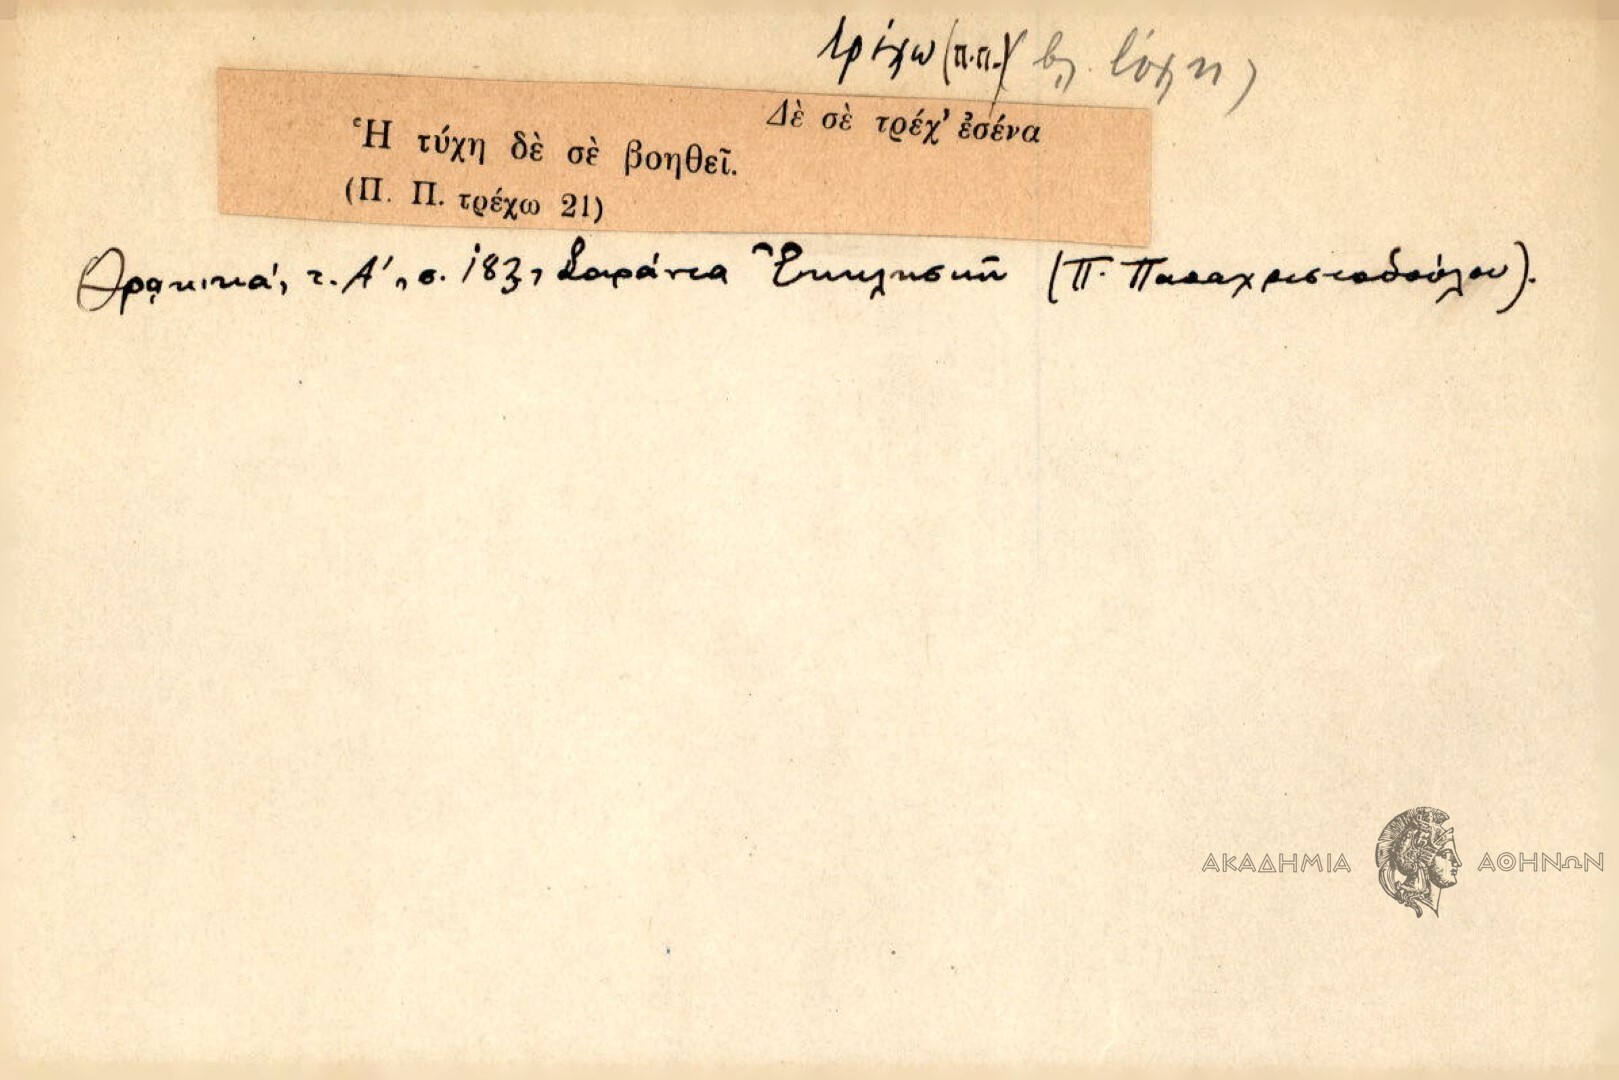 τρέχω (π.π.) βλ. τύχη)
Δὲ σὲ τρέχ' ἐσένα
Ἡ τύχη δὲ σὲ βοηθεῖ.
(Π. Π. τρέχω 21)
Θρᾳκικά, τ. Α', σ. 183, Σαράντα Ἐκκλησιῶν (Π. Παπαχριστοδούλου).
ΑΚΑΔΗΜΙΑ ΑΘΗΝΩΝ